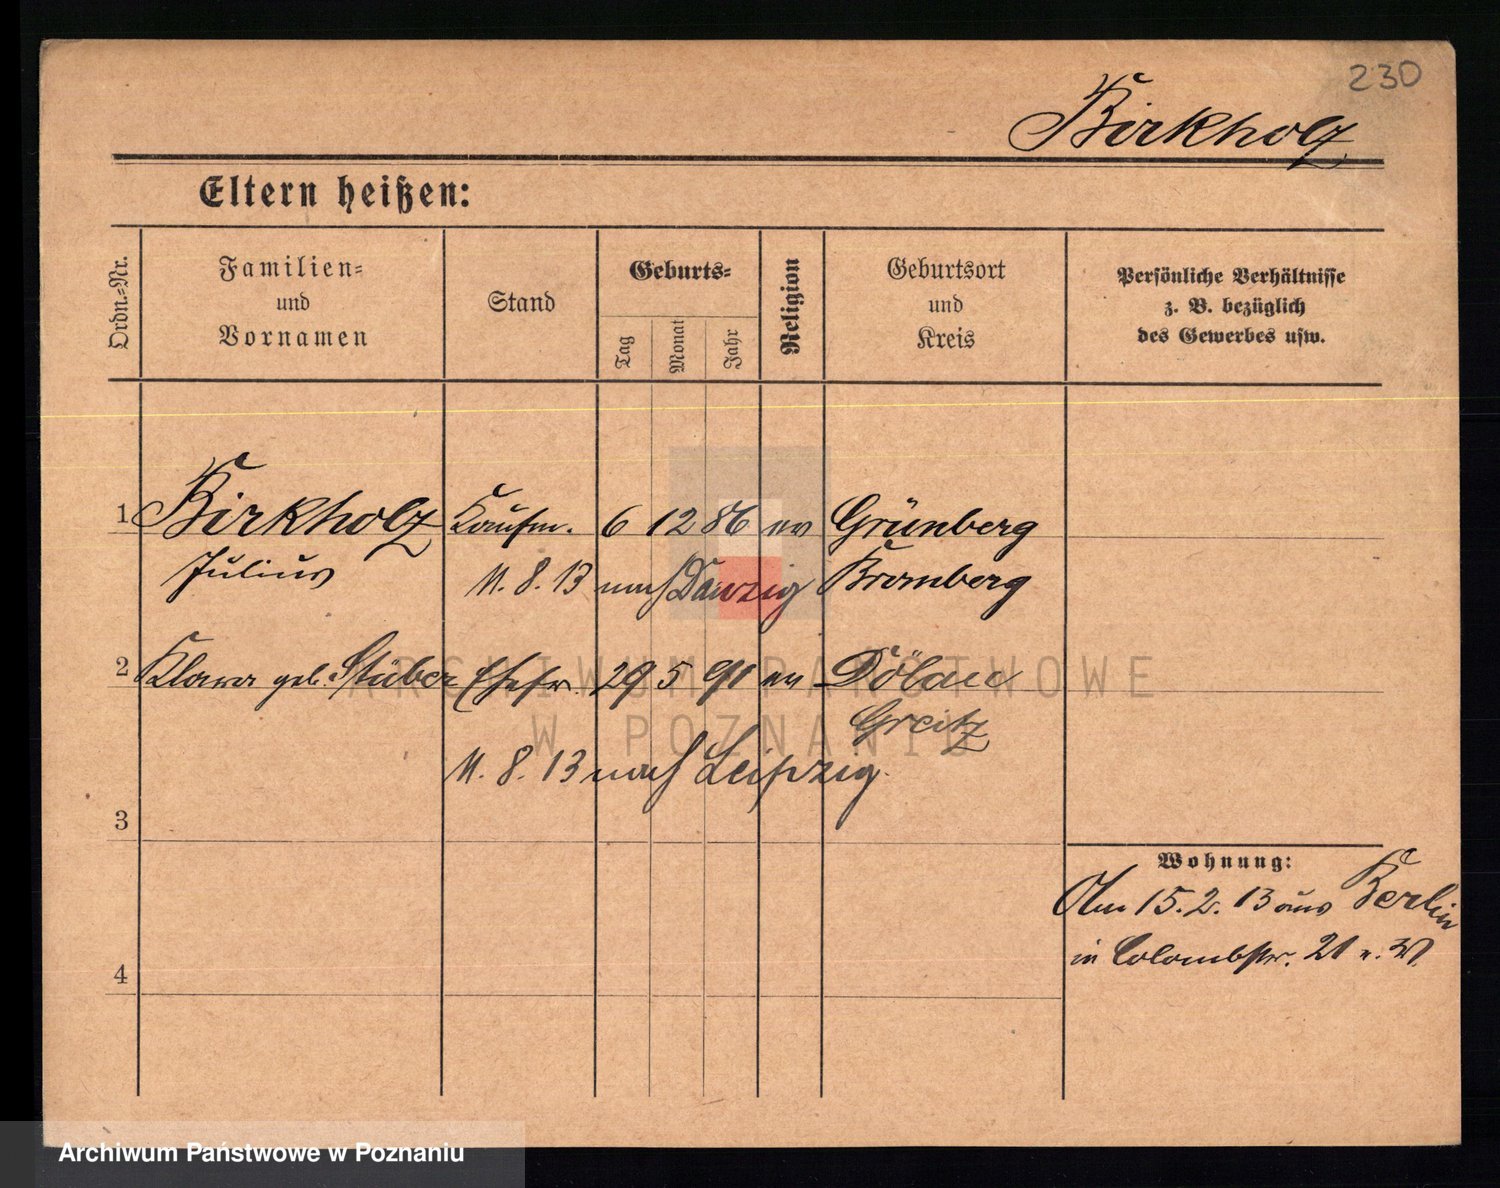 230
Birkholz
Eltern heißen:
Ordn.-Nr.
Familien-
und
Vornamen
Stand
Geburts-
Tag
Monat
Jahr
Religion
Geburtsort
und
Kreis
Persönliche Verhältnisse
z. B. bezüglich
des Gewerbes usw.
1 Birkholz Kaufm. 6 12 86 ev Grünberg
Julius 11. 8. 13 nach Danzig Bromberg
2 Klara geb. Stüber Ehefr. 29 5 91 ev Dölau
Greitz
11. 8. 13 nach Leipzig.
3
Wohnung:
15. 2. 13 aus Berlin
in Colombstr. 21
4
ARCHIWUM PAŃSTWOWE
W POZNANIU
Archiwum Państwowe w Poznaniu